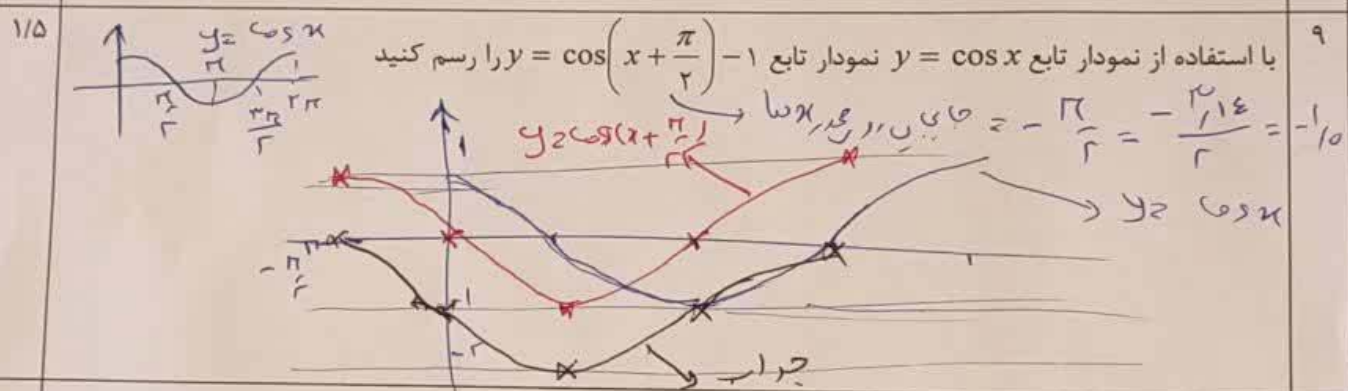 ۹
با استفاده از نمودار تابع y = cos x نمودار تابع y = cos(x + π/۲) − ۱ را رسم کنید
۱/۵
y = cos x
π/۲ π ۳π/۲ ۲π
۱
y = cos(x + π/۲)
= − π/۲ = −۳٫۱۴/۲ = −۱/۵
y = cos x
۱
− π/۲
−۱
−۲
جواب